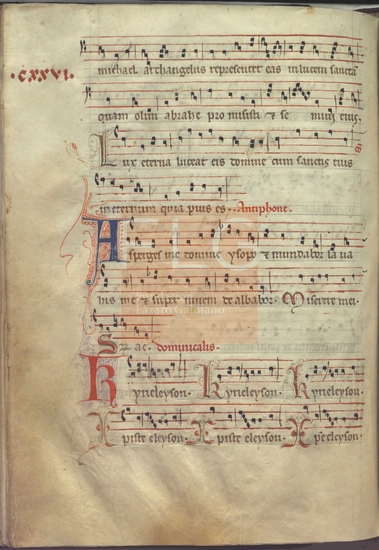 ·CXXVI·
michael archangelus representet eas in lucem sancta
quam olim abrahe promisisti & se mini eius
Lux eterna luceat eis domine cum sanctis tuis
in eternum quia pius es · Antiphone ·
Asperges me domine ysopo & mundabor lava
bis me & super nivem dealbabor · Miserere mei
dominicalis ·
Kyrieleyson · Kyrieleyson · Kyrieleyson ·
Xpiste eleyson · Xpiste eleyson · Xpe eleyson ·
Lázaro Galdiano